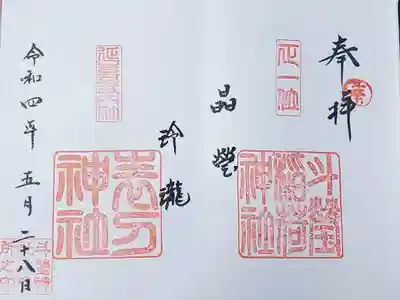 奉拝
正一位
斗瑩稲荷神社
晶瑩
玲瓏
延喜式内
神社
令和四年 五月 二十八日